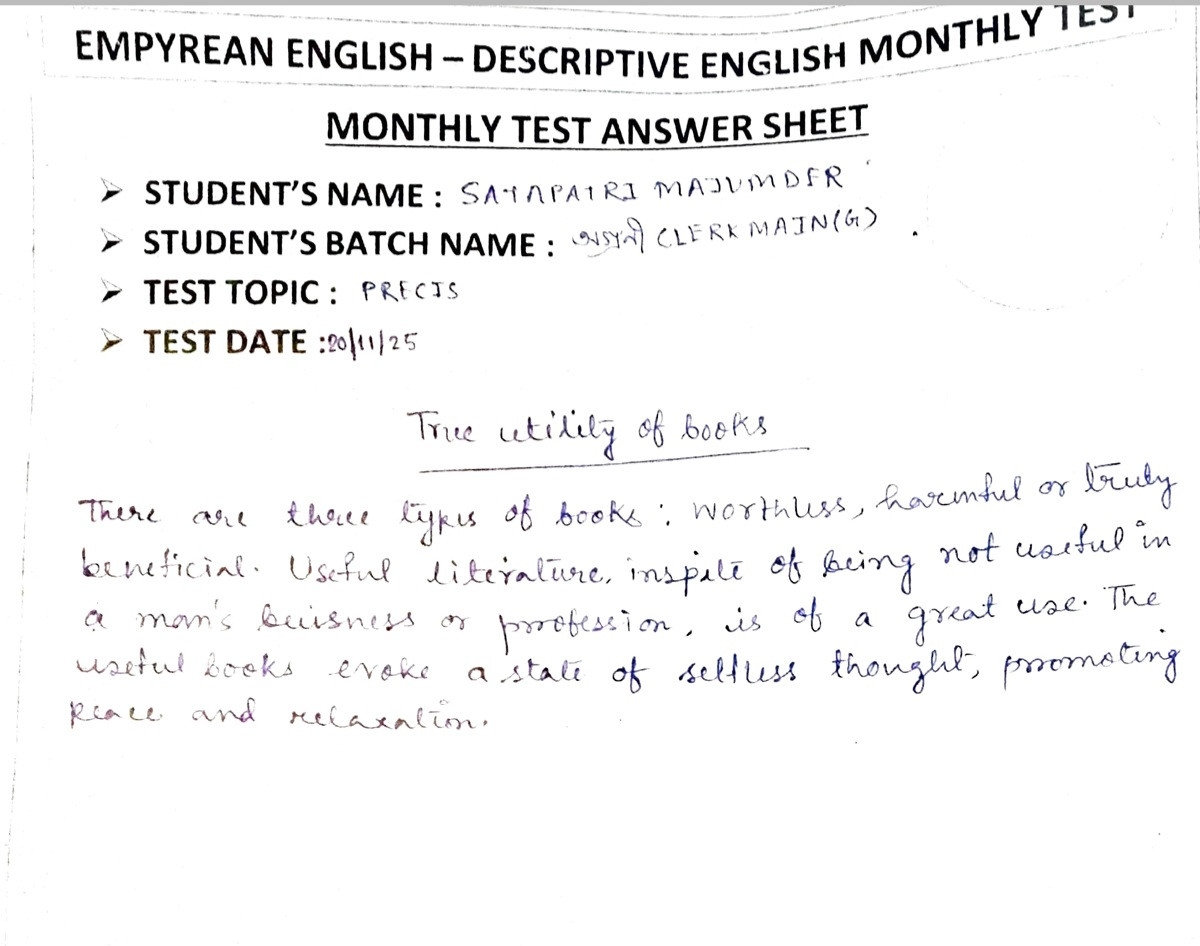 EMPYREAN ENGLISH – DESCRIPTIVE ENGLISH MONTHLY TEST
MONTHLY TEST ANSWER SHEET
➢ STUDENT'S NAME : SATAPATRI MAJUMDER
➢ STUDENT'S BATCH NAME : CLERK MAIN(G)
➢ TEST TOPIC : PRECIS
➢ TEST DATE :20/11/25
True utility of books
There are three types of books : worthless, harmful or truly
beneficial. Useful literature, inspite of being not useful in
a man's buisness or profession, is of a great use. The
useful books evoke a state of selfless thought, promoting
peace and relaxation.